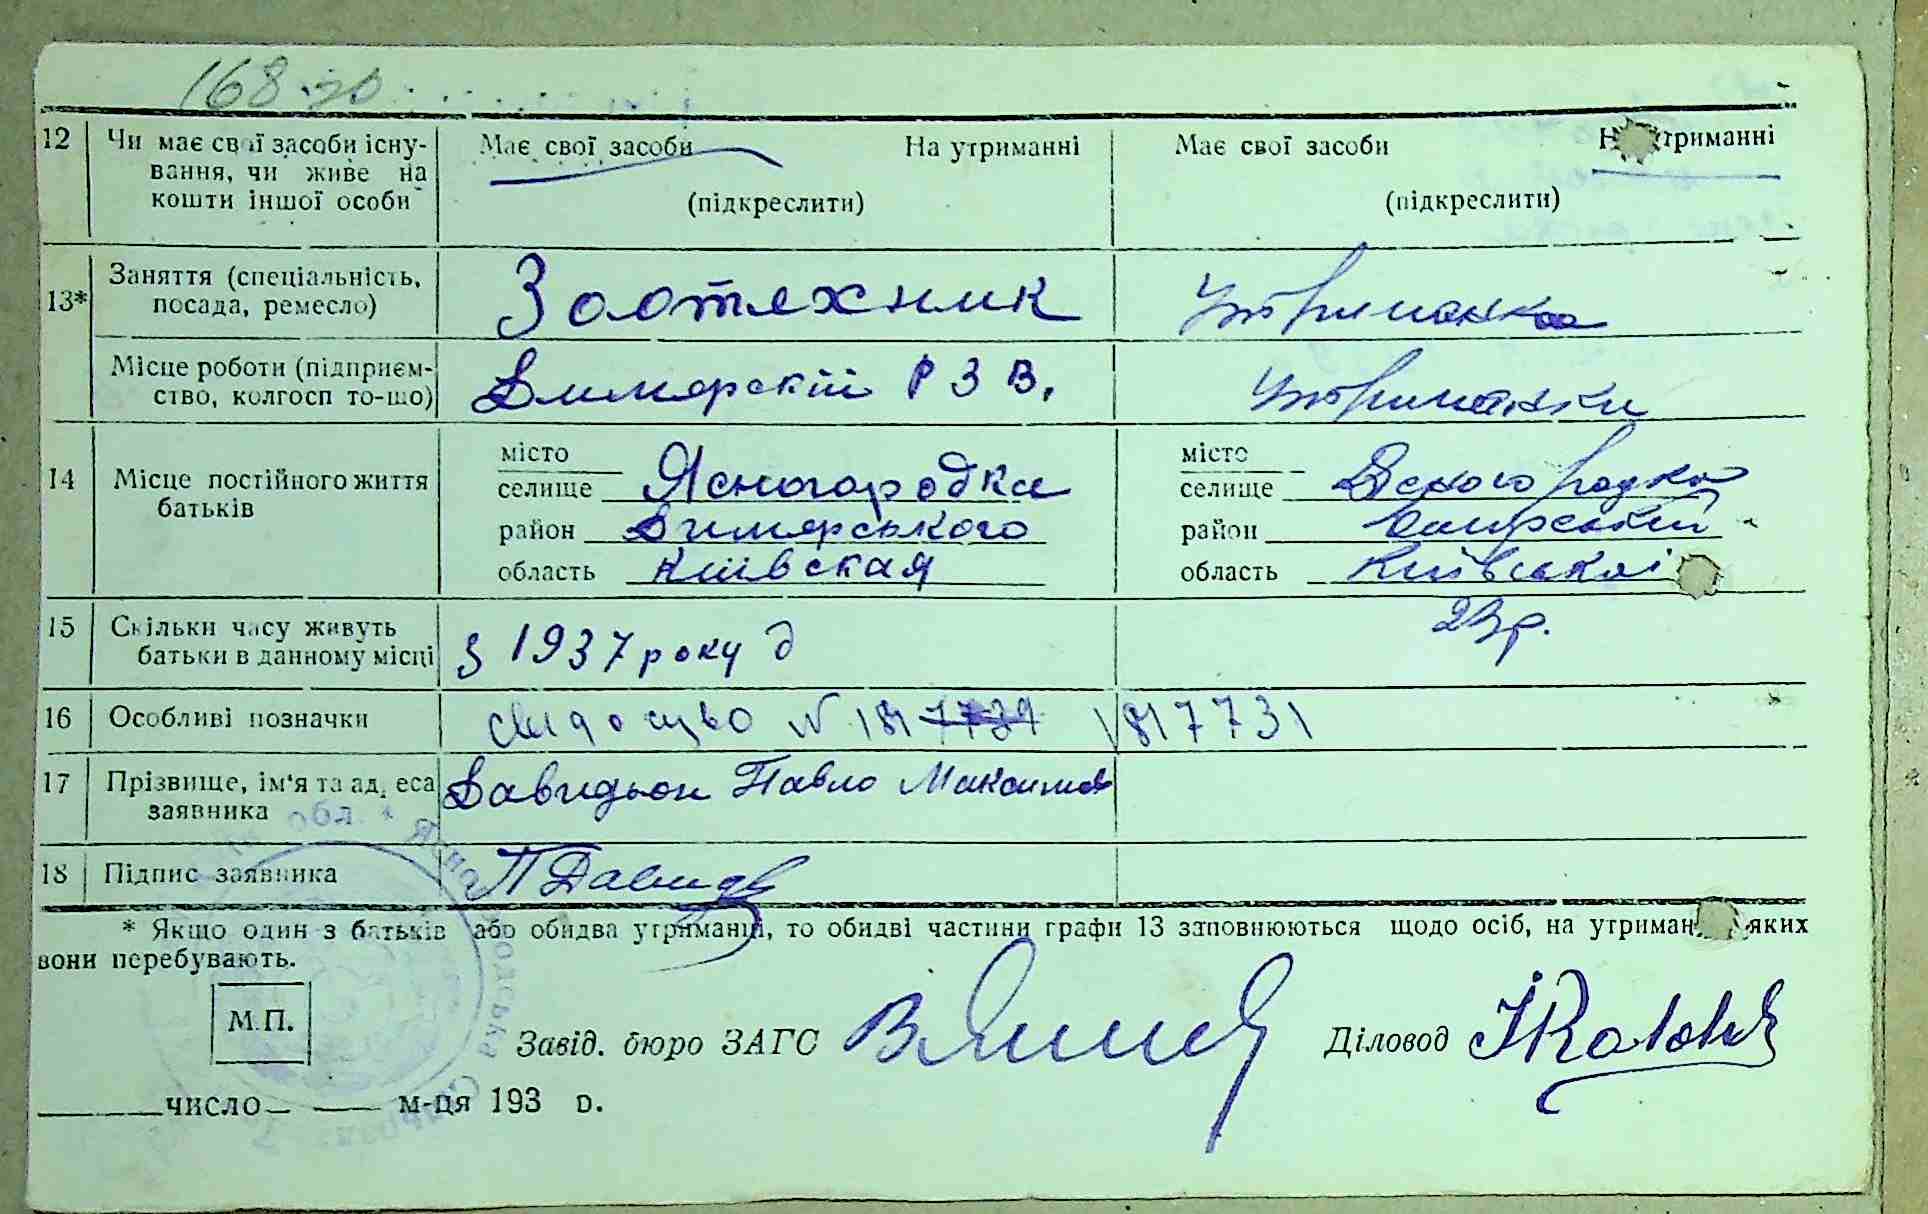 168
12 Чи має свої засоби існу- Має свої засоби На утриманні Має свої засоби На утриманні
вання, чи живе на
кошти іншої особи (підкреслити) (підкреслити)
13* Заняття (спеціальність, Зоотехник Утриманка
посада, ремесло)
Місце роботи (підприєм- Димерскій РЗВ. Утриманка
ство, колгосп то-що)
місто місто
14 Місце постійного життя селище Ясногородка селище Ясногородка
батьків район Димерського район Димерський
область Київская область Київської
15 Скільки часу живуть з 1937 року 23р.
батьки в данному місці
16 Особливі позначки свидоцтво N 1817731
17 Прізвище, ім'я та адреса Давидюк Павло Максимов
заявника
18 Підпис заявника П Давидю
* Якщо один з батьків або обидва утриманці, то обидві частини графи 13 заповнюються щодо осіб, на утриманні яких
вони перебувають.
М.П.
Завід. бюро ЗАГС Діловод
число м-ця 193 р.